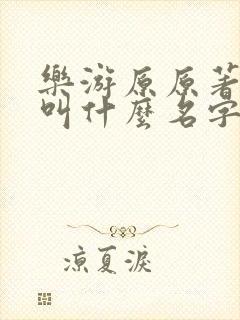 樂游原原著
叫什麼名字
凉夏淚